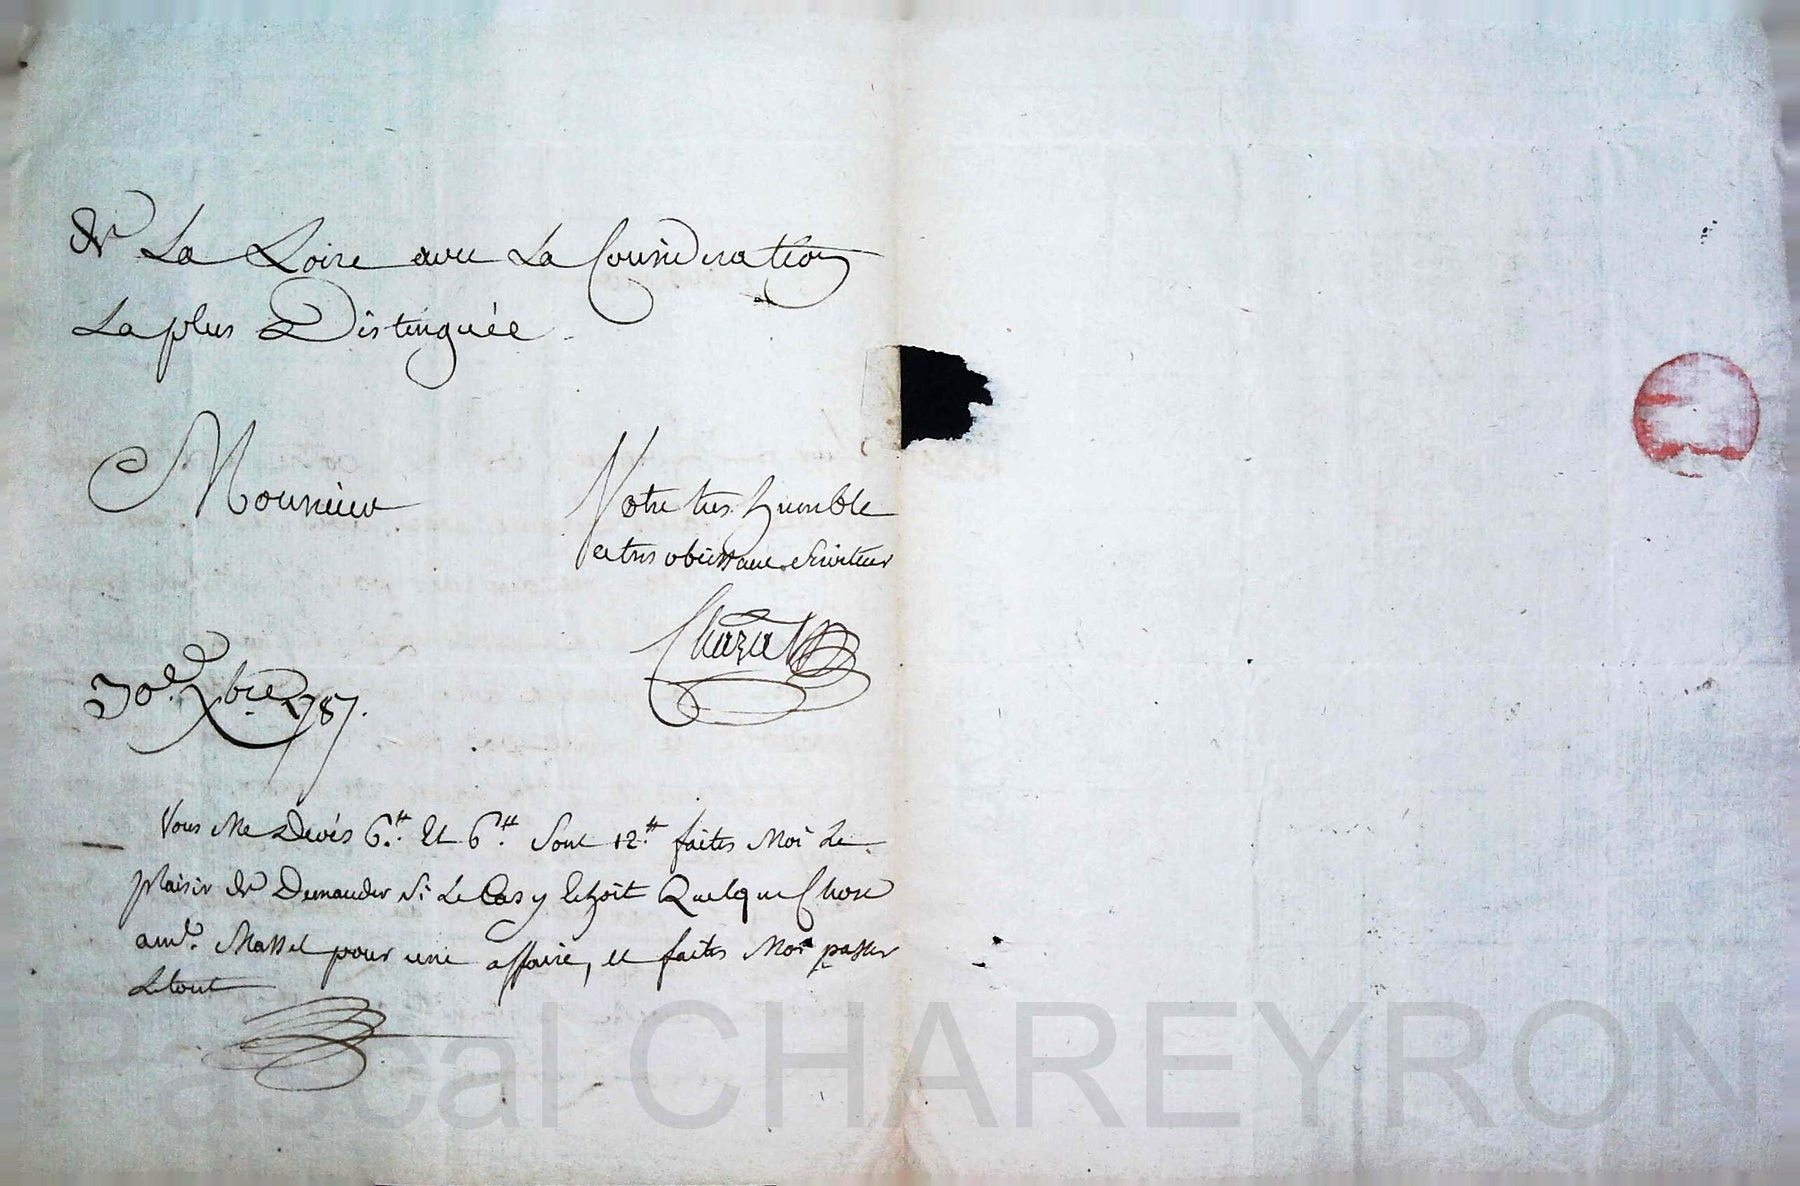 de La Loire avec La Consideration
La plus Distinguée
Monsieur
Votre tres humble
et tres obeissant serviteur
Chazal
30e. Xbre 1787.
Vous Me Devés 6.tt Et 6.tt Sont 12.tt faites Moi Le
plaisir de Demander Si Le Cas y Echoit Quelque Chose
a md. Massel pour une affaire, et faites Moi passer
Le tout
Pascal CHAREYRON